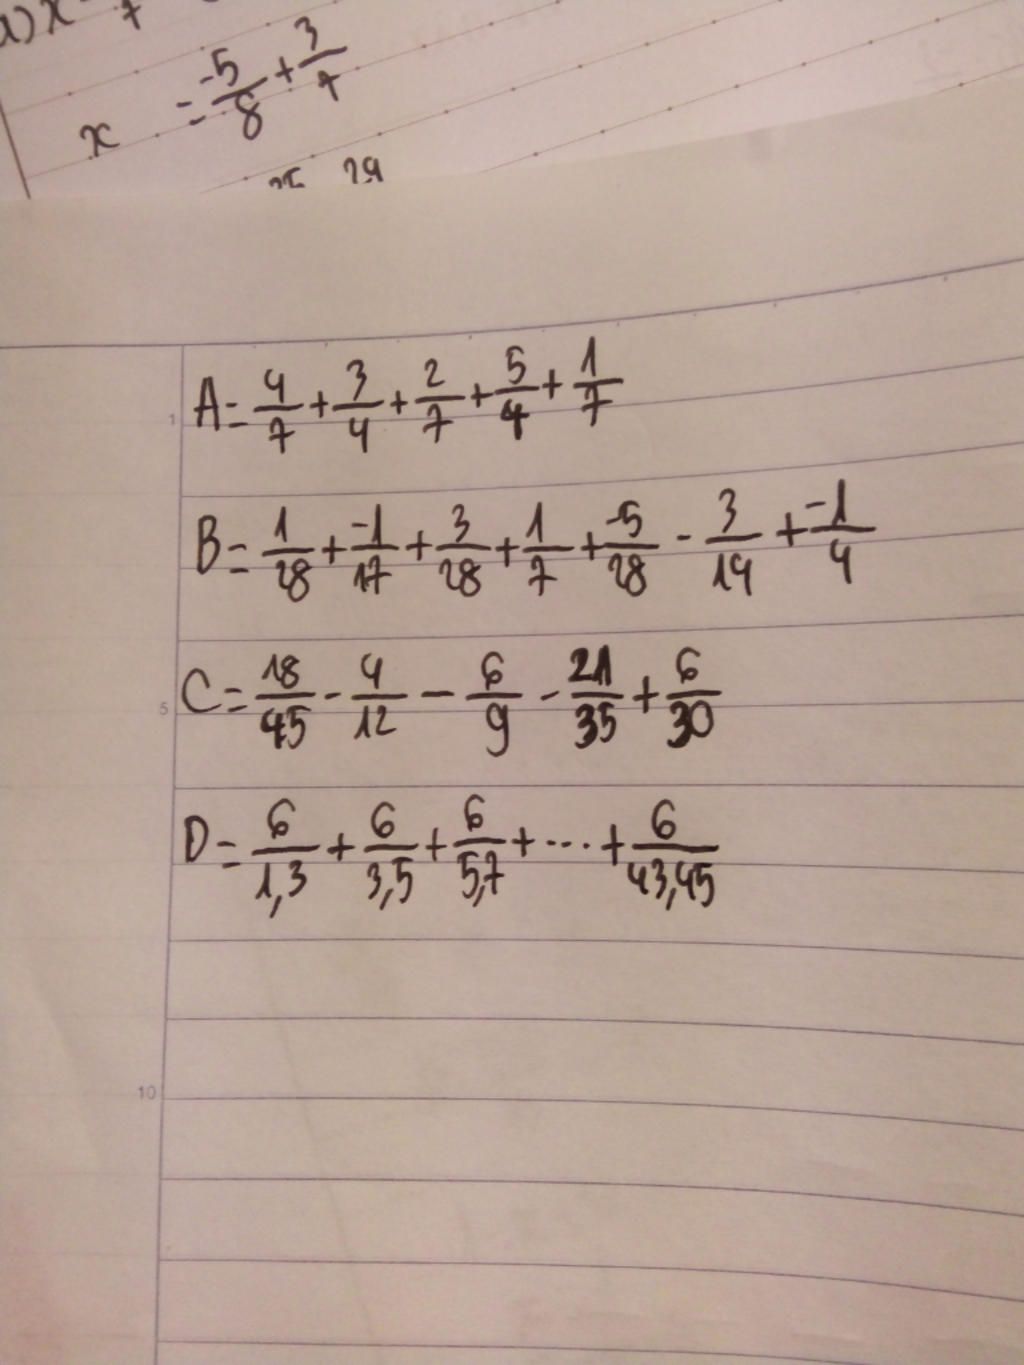 a) x
x = -5/8 + 3/7
25 29
A = 4/7 + 3/4 + 2/7 + 5/4 + 1/7
1
B = 1/28 + -1/17 + 3/28 + 1/7 + -5/28 - 3/14 + -1/4
C = 18/45 - 4/12 - 6/9 - 21/35 + 6/30
5
D = 6/1,3 + 6/3,5 + 6/5,7 + ... + 6/43,45
10